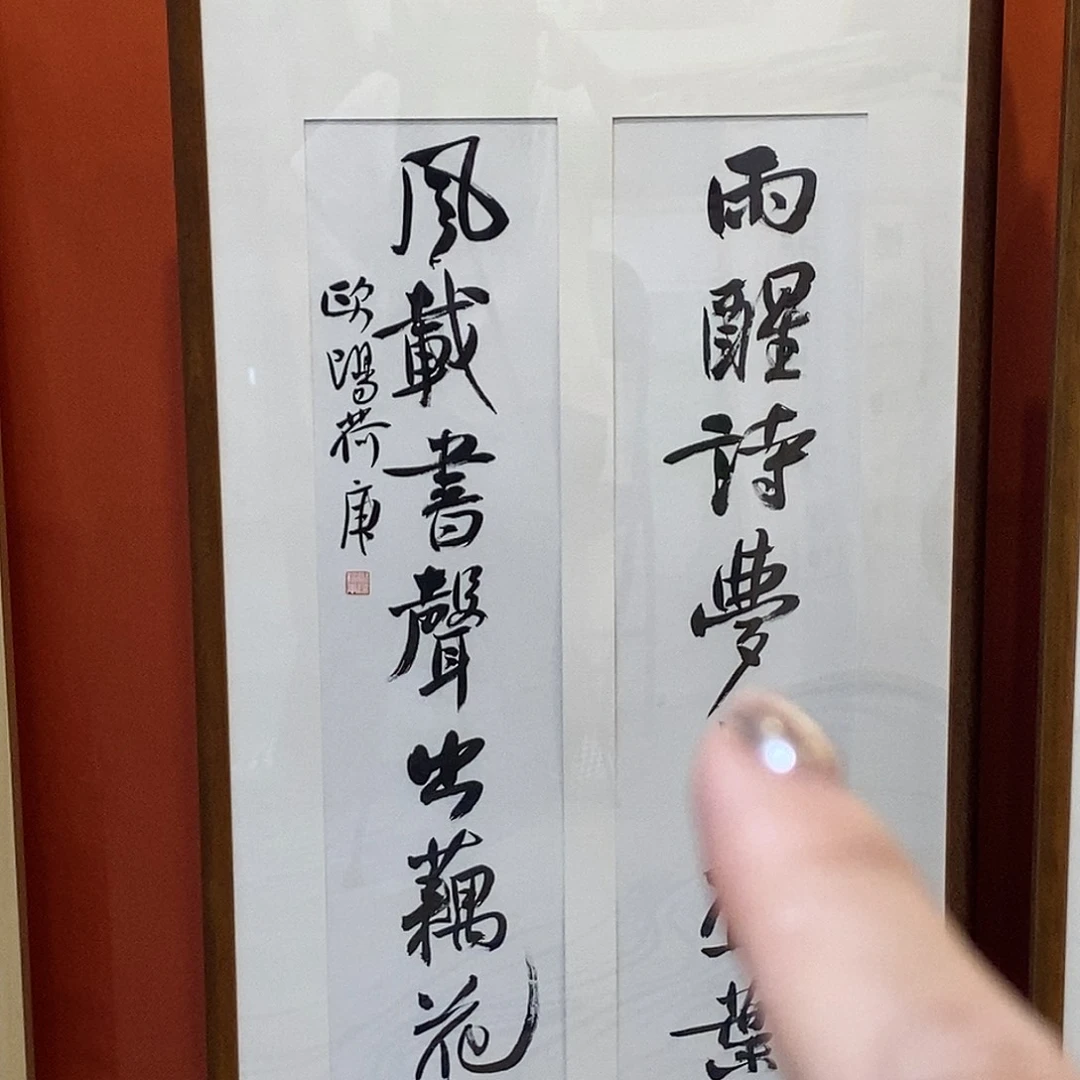 雨醒詩夢葉
風載書聲出藕花
歐陽荷庚